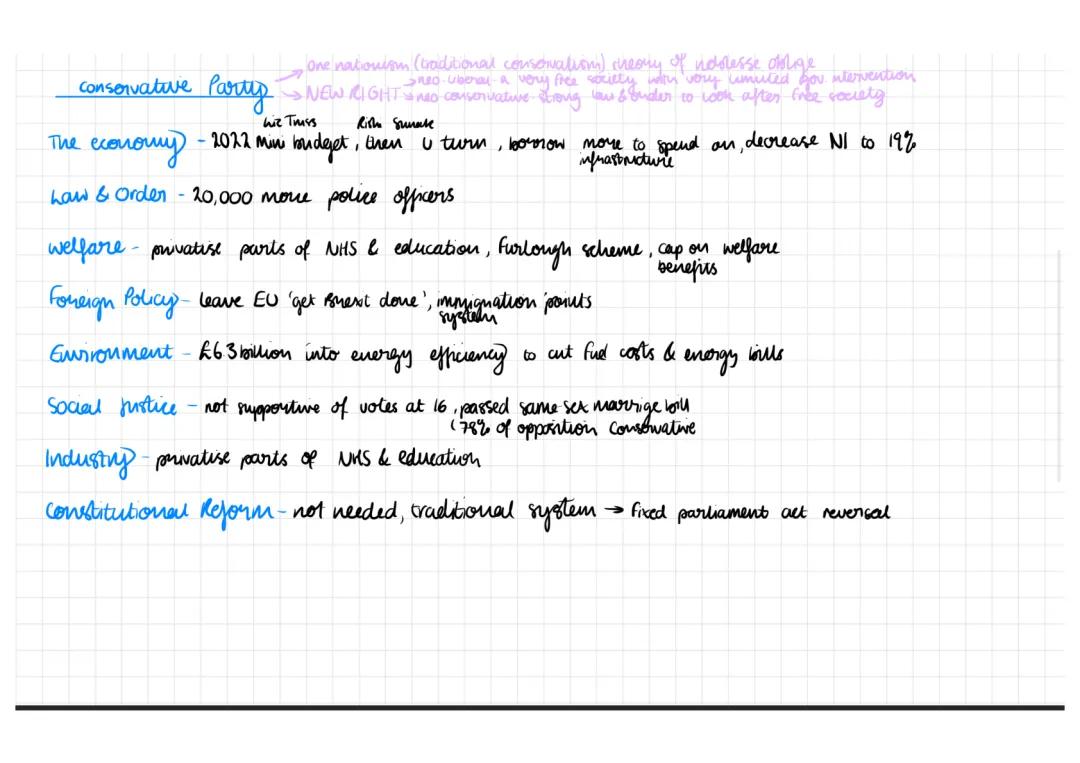 one nationism (traditional conservatism) theory of noblesse oblige
Conservative Party → neo-liberal - a very free society with very limited gov intervention
→ NEW RIGHT → neo conservative - strong law & order to look after free society
Liz Truss Rishi Sunak
The economy - 2022 mini budget, then u turn, borrow more to spend on, decrease NI to 19%
infrastructure
Law & Order - 20,000 more police officers
welfare - privatise parts of NHS & education, furlough scheme, cap on welfare
benefits
Foreign Policy - leave EU 'get Brexit done', immigration points
system
Environment - £6.3 billion into energy efficiency to cut fuel costs & energy bills
Social Justice - not supportive of votes at 16, passed same sex marrige bill
(78% of opposition Conservative
Industry - privatise parts of NHS & education
Constitutional Reform - not needed, traditional system → fixed parliament act reversal